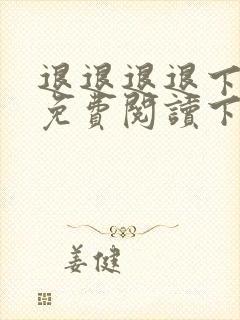 退退退退下
免費閱讀下
姜健